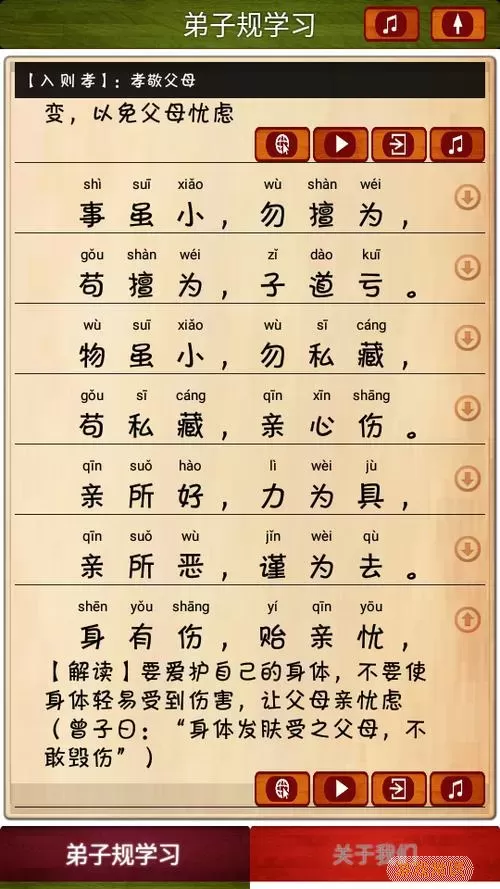 弟子规学习
【入则孝】：孝敬父母
变，以免父母忧虑
shì suī xiǎo wù shàn wéi
事虽小，勿擅为，
gǒu shàn wéi zǐ dào kuī
苟擅为，子道亏。
wù suī xiǎo wù sī cáng
物虽小，勿私藏，
gǒu sī cáng qīn xīn shāng
苟私藏，亲心伤。
qīn suǒ hào lì wèi jù
亲所好，力为具，
qīn suǒ wù jǐn wèi qù
亲所恶，谨为去。
shēn yǒu shāng yí qīn yōu
身有伤，贻亲忧，
【解读】要爱护自己的身体，不要使
身体轻易受到伤害，让父母亲忧虑
（曾子曰：“身体发肤受之父母，不
敢毁伤”）
弟子规学习
关于我们